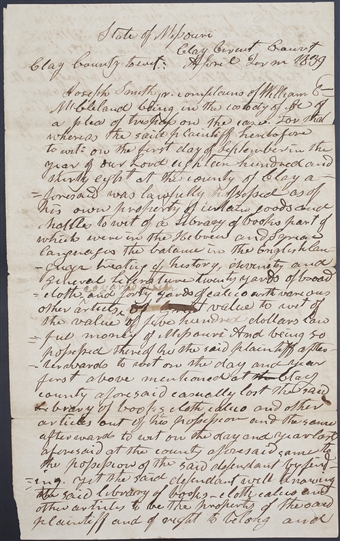 State of Missouri
Clay Circuit Court
Clay County Towit: April Term 1839
Joseph Smith jr complains of William E
McLeland being in the custody of &c of
a plea of trespass on the case. For that
whereas the said plaintiff heretofore
to wit on the first day of September in the
year of our Lord eighteen hundred and
thirty eight at the county of Clay a-
=foresaid was lawfully possessed as of
his own property of certain goods and
chattles to wit of a library of books part of
which were in the Hebrew and Syriac
languages the balance in the English lan
=guage treating of history, divinity and
general literature twenty yards of broad
cloth, and forty yards of calico with various
other articles of value to wit of
the value of five hundred dollars law
ful money of Missouri And being so
possessed thereof he the said plaintiff after-
=wards to wit on the day and year
first above mentioned at the Clay
county aforesaid casually lost the said
library of books cloth calico and other
articles out of his possession and the same
afterwards to wit on the day and year last
aforesaid at the county aforesaid came to
the possession of the said defendant by find-
=ing. Yet the said defendant well knowing
the said library of books - cloth calico and
other articles to be the property of the said
plaintiff and of right to belong and